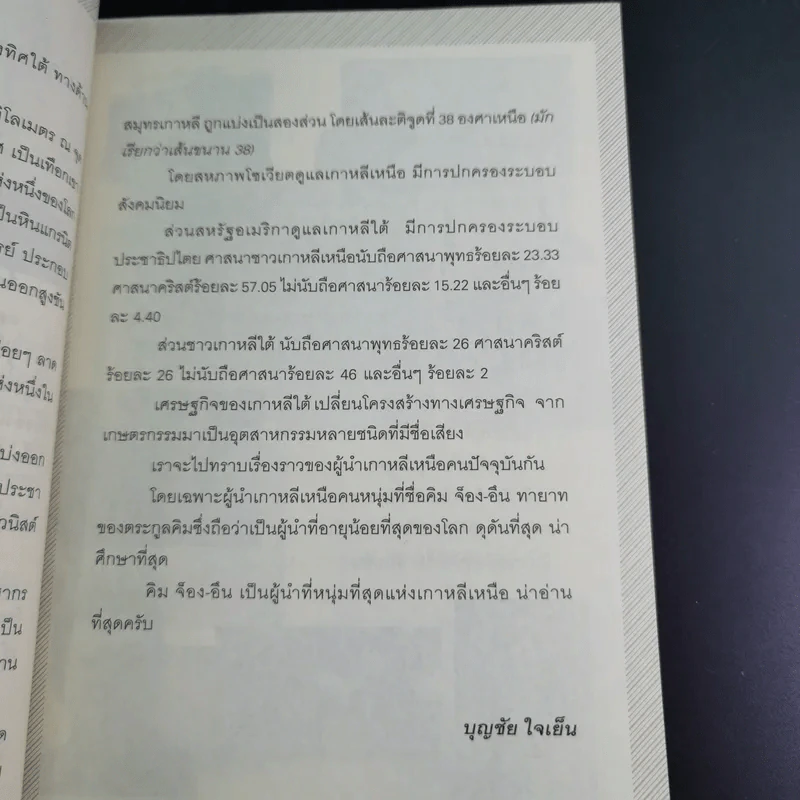 งทิศใต้ ทางด้าน
กิโลเมตร ณ จุด
เป็นเทือกเขา
ห่งหนึ่งของโลก
ป็นหินแกรนิต
รย์ ประกอบ
นออกสูงชัน
่อยๆ ลาด
ห่งหนึ่งใน
แบ่งออก
ประชา
วนิสต์
ากร
เป็น
าน
สมุทรเกาหลี ถูกแบ่งเป็นสองส่วน โดยเส้นละติจูดที่ 38 องศาเหนือ (มัก
เรียกว่าเส้นขนาน 38)
โดยสหภาพโซเวียตดูแลเกาหลีเหนือ มีการปกครองระบอบ
สังคมนิยม
ส่วนสหรัฐอเมริกาดูแลเกาหลีใต้ มีการปกครองระบอบ
ประชาธิปไตย ศาสนาชาวเกาหลีเหนือนับถือศาสนาพุทธร้อยละ 23.33
ศาสนาคริสต์ร้อยละ 57.05 ไม่นับถือศาสนาร้อยละ 15.22 และอื่นๆ ร้อย
ละ 4.40
ส่วนชาวเกาหลีใต้ นับถือศาสนาพุทธร้อยละ 26 ศาสนาคริสต์
ร้อยละ 26 ไม่นับถือศาสนาร้อยละ 46 และอื่นๆ ร้อยละ 2
เศรษฐกิจของเกาหลีใต้ เปลี่ยนโครงสร้างทางเศรษฐกิจ จาก
เกษตรกรรมมาเป็นอุตสาหกรรมหลายชนิดที่มีชื่อเสียง
เราจะไปทราบเรื่องราวของผู้นำเกาหลีเหนือคนปัจจุบันกัน
โดยเฉพาะผู้นำเกาหลีเหนือคนหนุ่มที่ชื่อคิม จ็อง-อึน ทายาท
ของตระกูลคิมซึ่งถือว่าเป็นผู้นำที่อายุน้อยที่สุดของโลก ดุดันที่สุด น่า
ศึกษาที่สุด
คิม จ็อง-อึน เป็นผู้นำที่หนุ่มที่สุดแห่งเกาหลีเหนือ น่าอ่าน
ที่สุดครับ
บุญชัย ใจเย็น